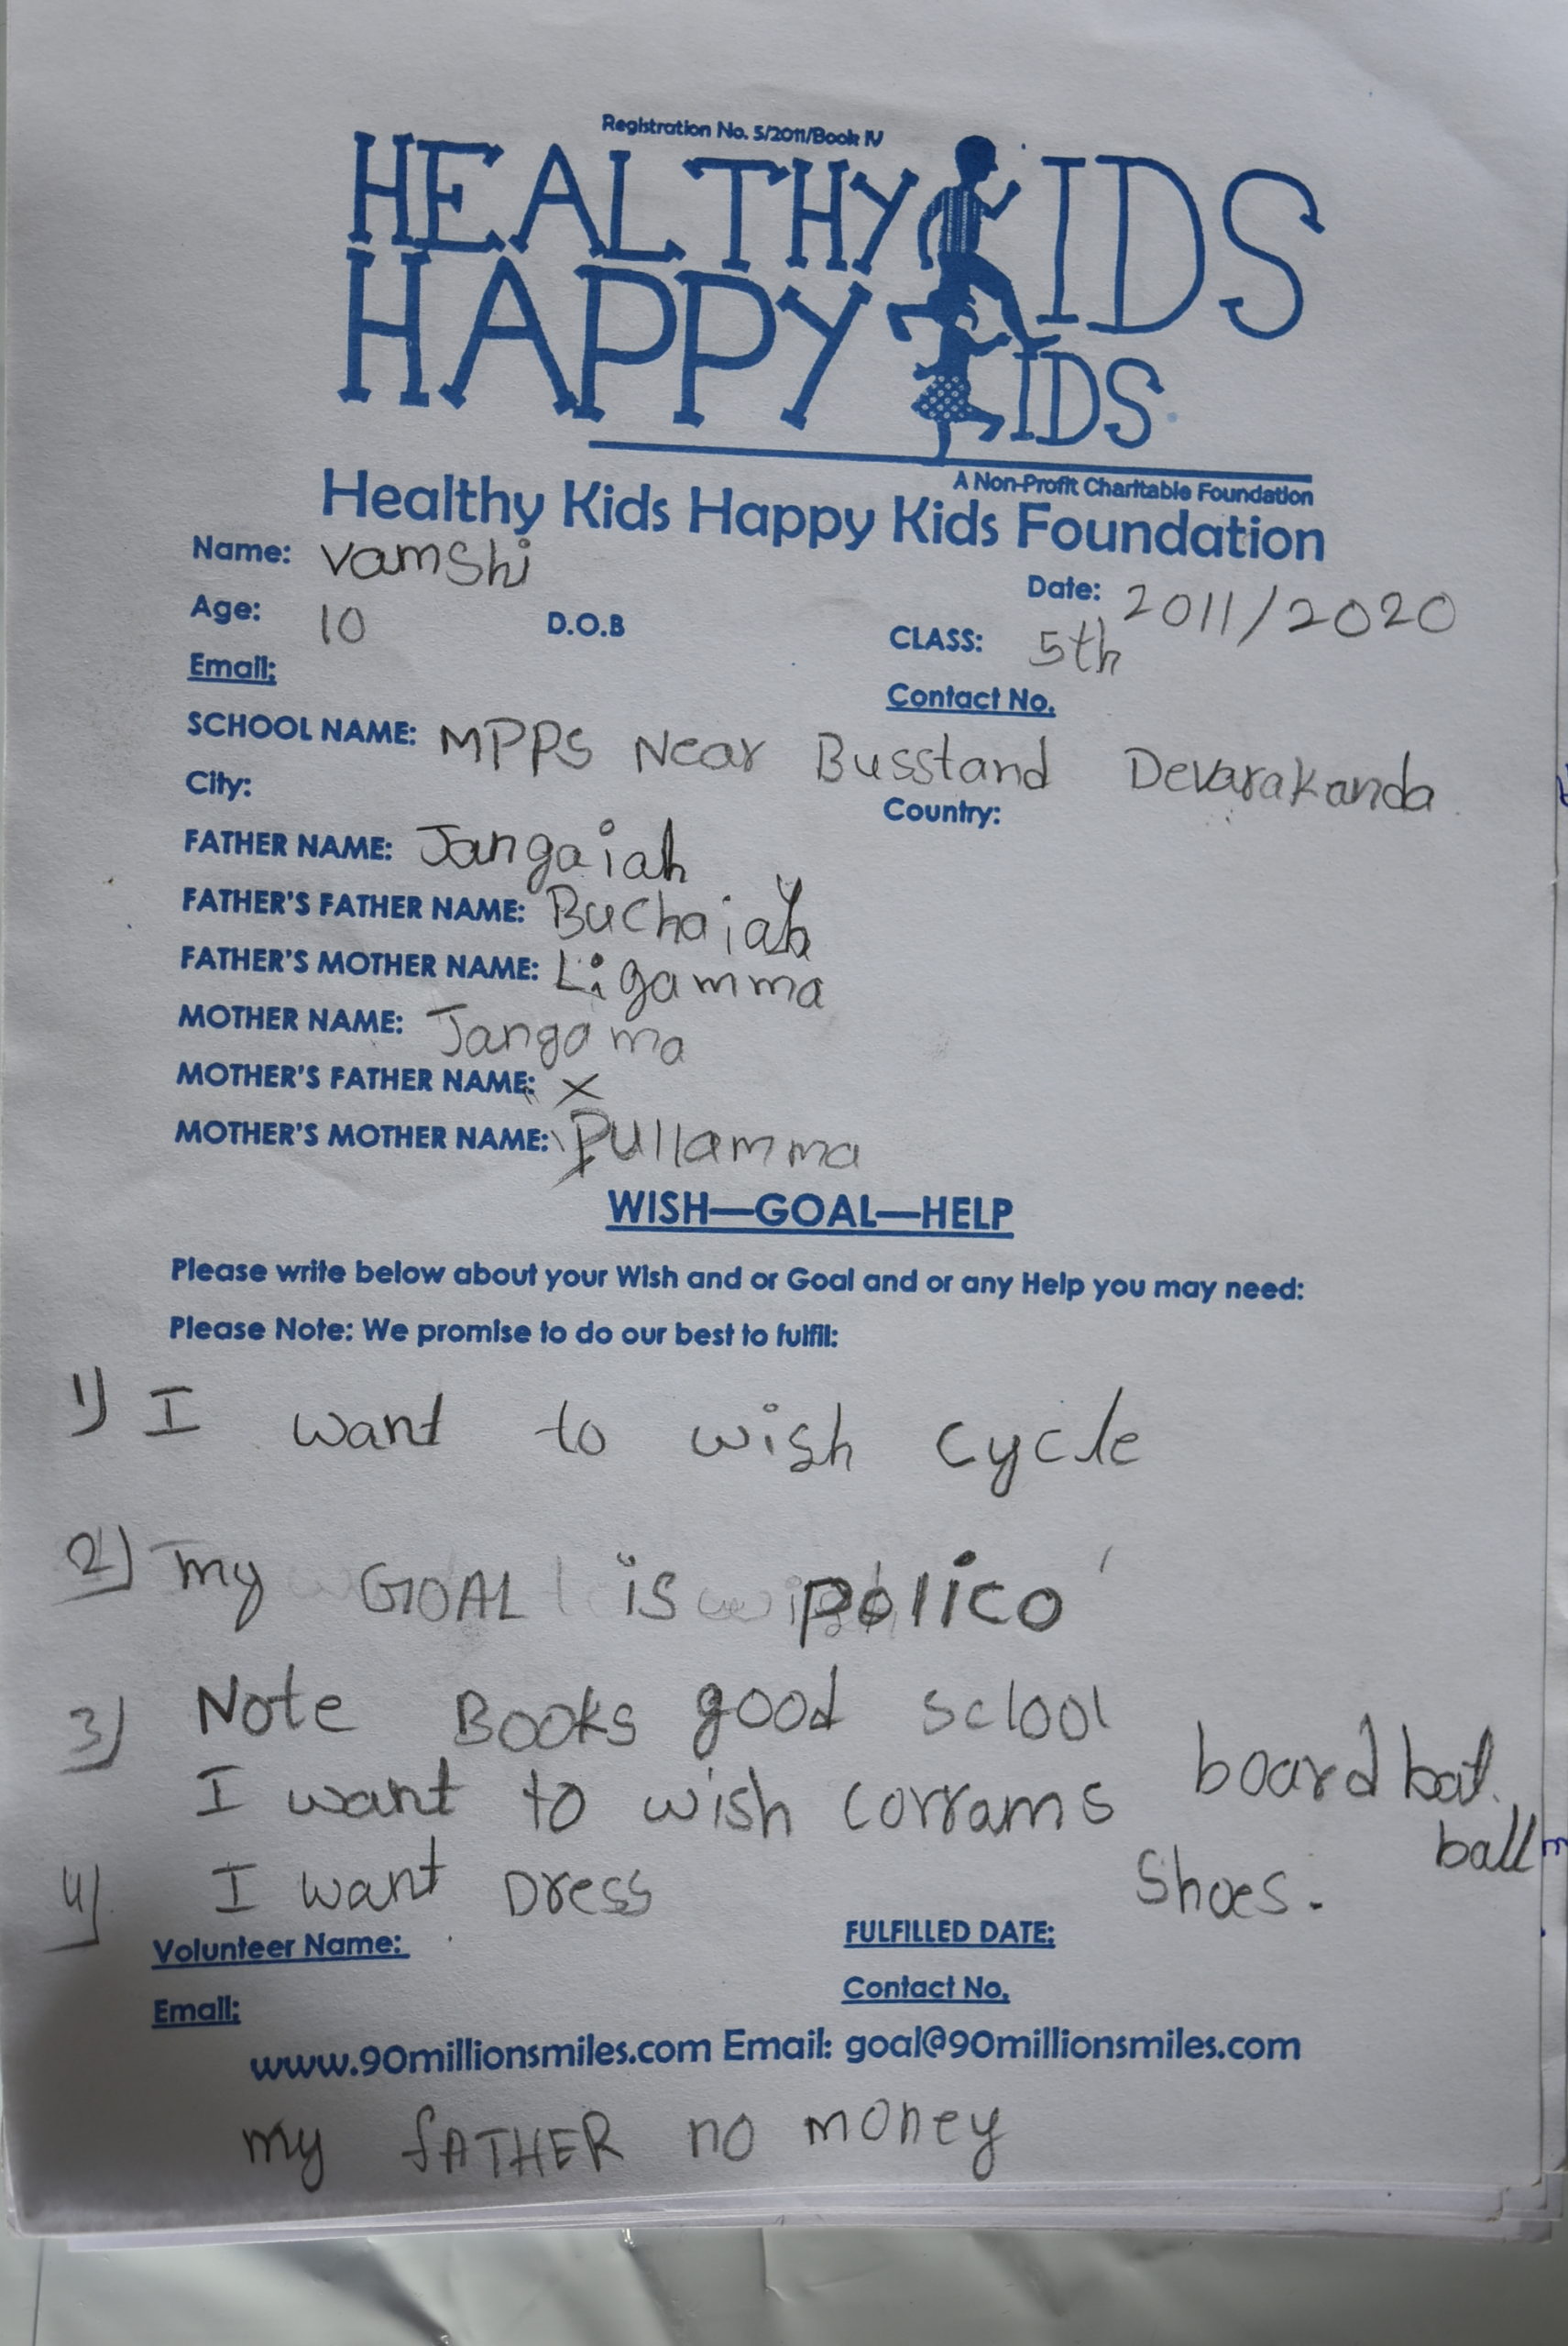 Registration No. 5/2011/Book IV
HEALTHY KIDS
HAPPY KIDS
A Non-Profit Charitable Foundation
Healthy Kids Happy Kids Foundation
Name: vamshi
Date: 2011/2020
Age: 10 D.O.B CLASS: 5th
Email: Contact No.
SCHOOL NAME: MPPS Near Busstand Devarakanda
City: Country:
FATHER NAME: Jangaiah
FATHER'S FATHER NAME: Buchaiah
FATHER'S MOTHER NAME: Ligamma
MOTHER NAME: Jangama
MOTHER'S FATHER NAME: X
MOTHER'S MOTHER NAME: Pullamma
WISH—GOAL—HELP
Please write below about your Wish and or Goal and or any Help you may need:
Please Note: We promise to do our best to fulfil:
1) I want to wish cycle
2) my GOAL is polico
3) Note Books good sclool
I want to wish corrams board bat.
ball
4) I want Dress Shoes.
Volunteer Name: FULFILLED DATE:
Email: Contact No.
www.90millionsmiles.com Email: goal@90millionsmiles.com
my fATHER no money